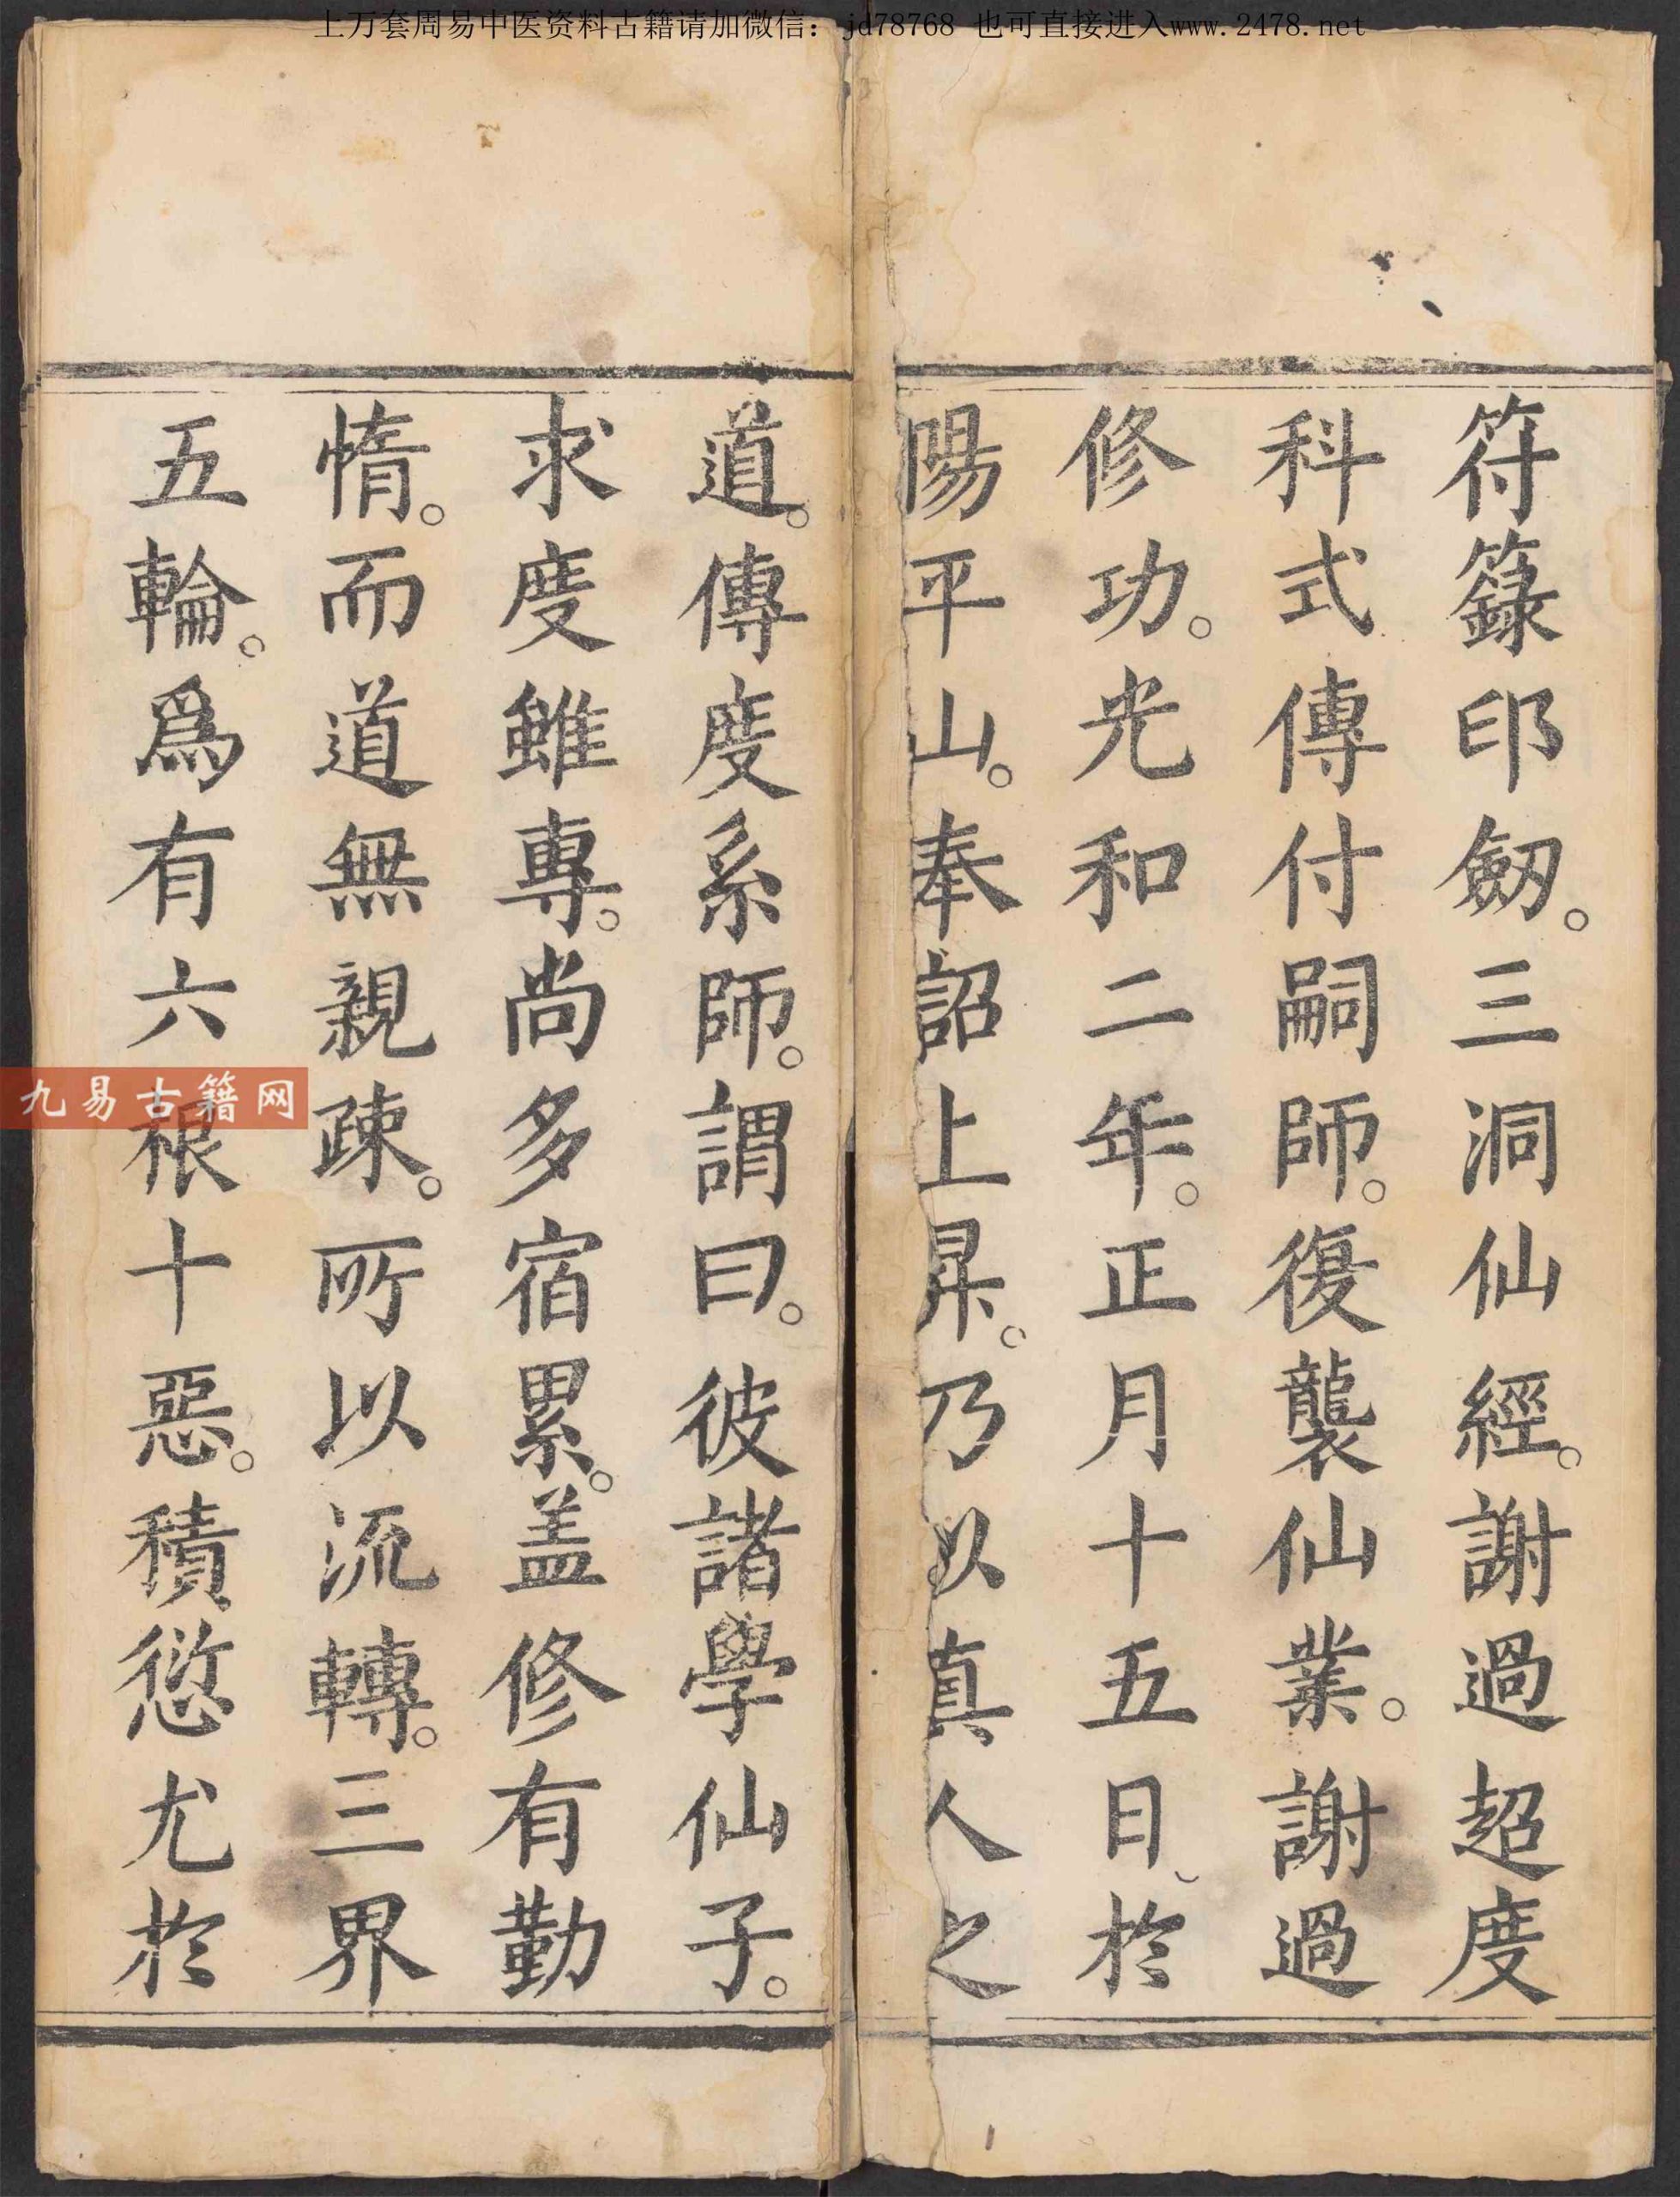 上万套周易中医资料古籍请加微信：jd78768 也可直接进入www.2478.net
符籙印劒。三洞仙經。謝過超度
科式傳付嗣師。復襲仙業。謝過
修功。光和二年。正月十五日、於
陽平山。奉詔上昇。乃以真人之
道。傳度系師。謂曰。彼諸學仙子。
求度雖專。尚多宿累。盖修有勤
惰。而道無親疎。所以流轉。三界
五輪。爲有六根十惡。積愆尤於
九易古籍网